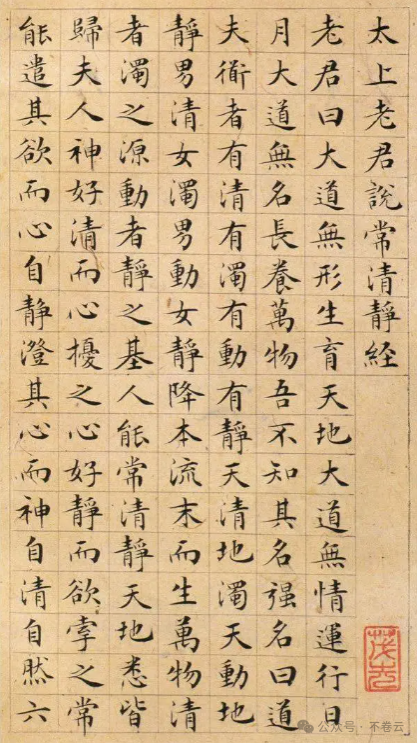 太上老君說常清靜経
老君曰大道無形生育天地大道無情運行日
月大道無名長養萬物吾不知其名强名曰道
夫衜者有清有濁有動有靜天清地濁天動地
靜男清女濁男動女靜降本流末而生萬物清
者濁之源動者靜之基人能常清靜天地悉皆
歸夫人神好清而心擾之心好靜而欲牽之常
能遣其欲而心自静澄其心而神自清自然六
公众号 · 不卷云